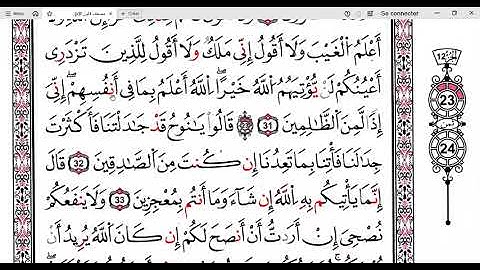 Se connecter
أَعْلَمُ ٱلْغَيْبَ وَلَآ أَقُولُ إِنِّى مَلَكٌ وَلَآ أَقُولُ لِلَّذِينَ تَزْدَرِىٓ
أَعْيُنُكُمْ لَن يُؤْتِيَهُمُ ٱللَّهُ خَيْرًا ۖ ٱللَّهُ أَعْلَمُ بِمَا فِىٓ أَنفُسِهِمْ ۖ إِنِّىٓ
إِذًا لَّمِنَ ٱلظَّٰلِمِينَ 31 قَالُوا۟ يَٰنُوحُ قَدْ جَٰدَلْتَنَا فَأَكْثَرْتَ
جِدَٰلَنَا فَأْتِنَا بِمَا تَعِدُنَآ إِن كُنتَ مِنَ ٱلصَّٰدِقِينَ 32 قَالَ
إِنَّمَا يَأْتِيكُم بِهِ ٱللَّهُ إِن شَآءَ وَمَآ أَنتُم بِمُعْجِزِينَ 33 وَلَا يَنفَعُكُمْ
نُصْحِىٓ إِنْ أَرَدتُّ أَنْ أَنصَحَ لَكُمْ إِن كَانَ ٱللَّهُ يُرِيدُ أَن
23
24